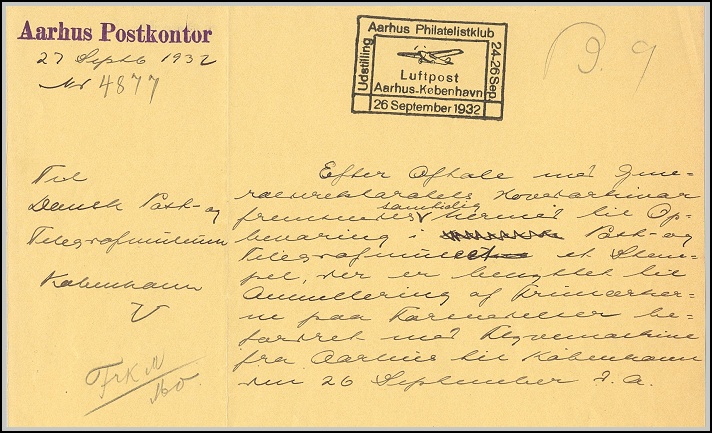 Aarhus Postkontor
27 Septb 1932
Nr 4877
Aarhus Philatelistklub
Udstilling
24-26 Sep.
Luftpost
Aarhus-København
26 September 1932
9.
Til
Dansk Post- og
Telegrafmuseum
København
V
Efter Aftale med Gene-
raldirektoratets Hovedarkivar
fremsendes samtidig hermed til Op-
bevaring i Post- og
Telegrafmuseet et Stem-
pel, der er benyttet til
Annullering af Frimærker-
ne paa Forsendelser be-
fordret med Flyvemaskine
fra Aarhus til København
den 26 September d. A.